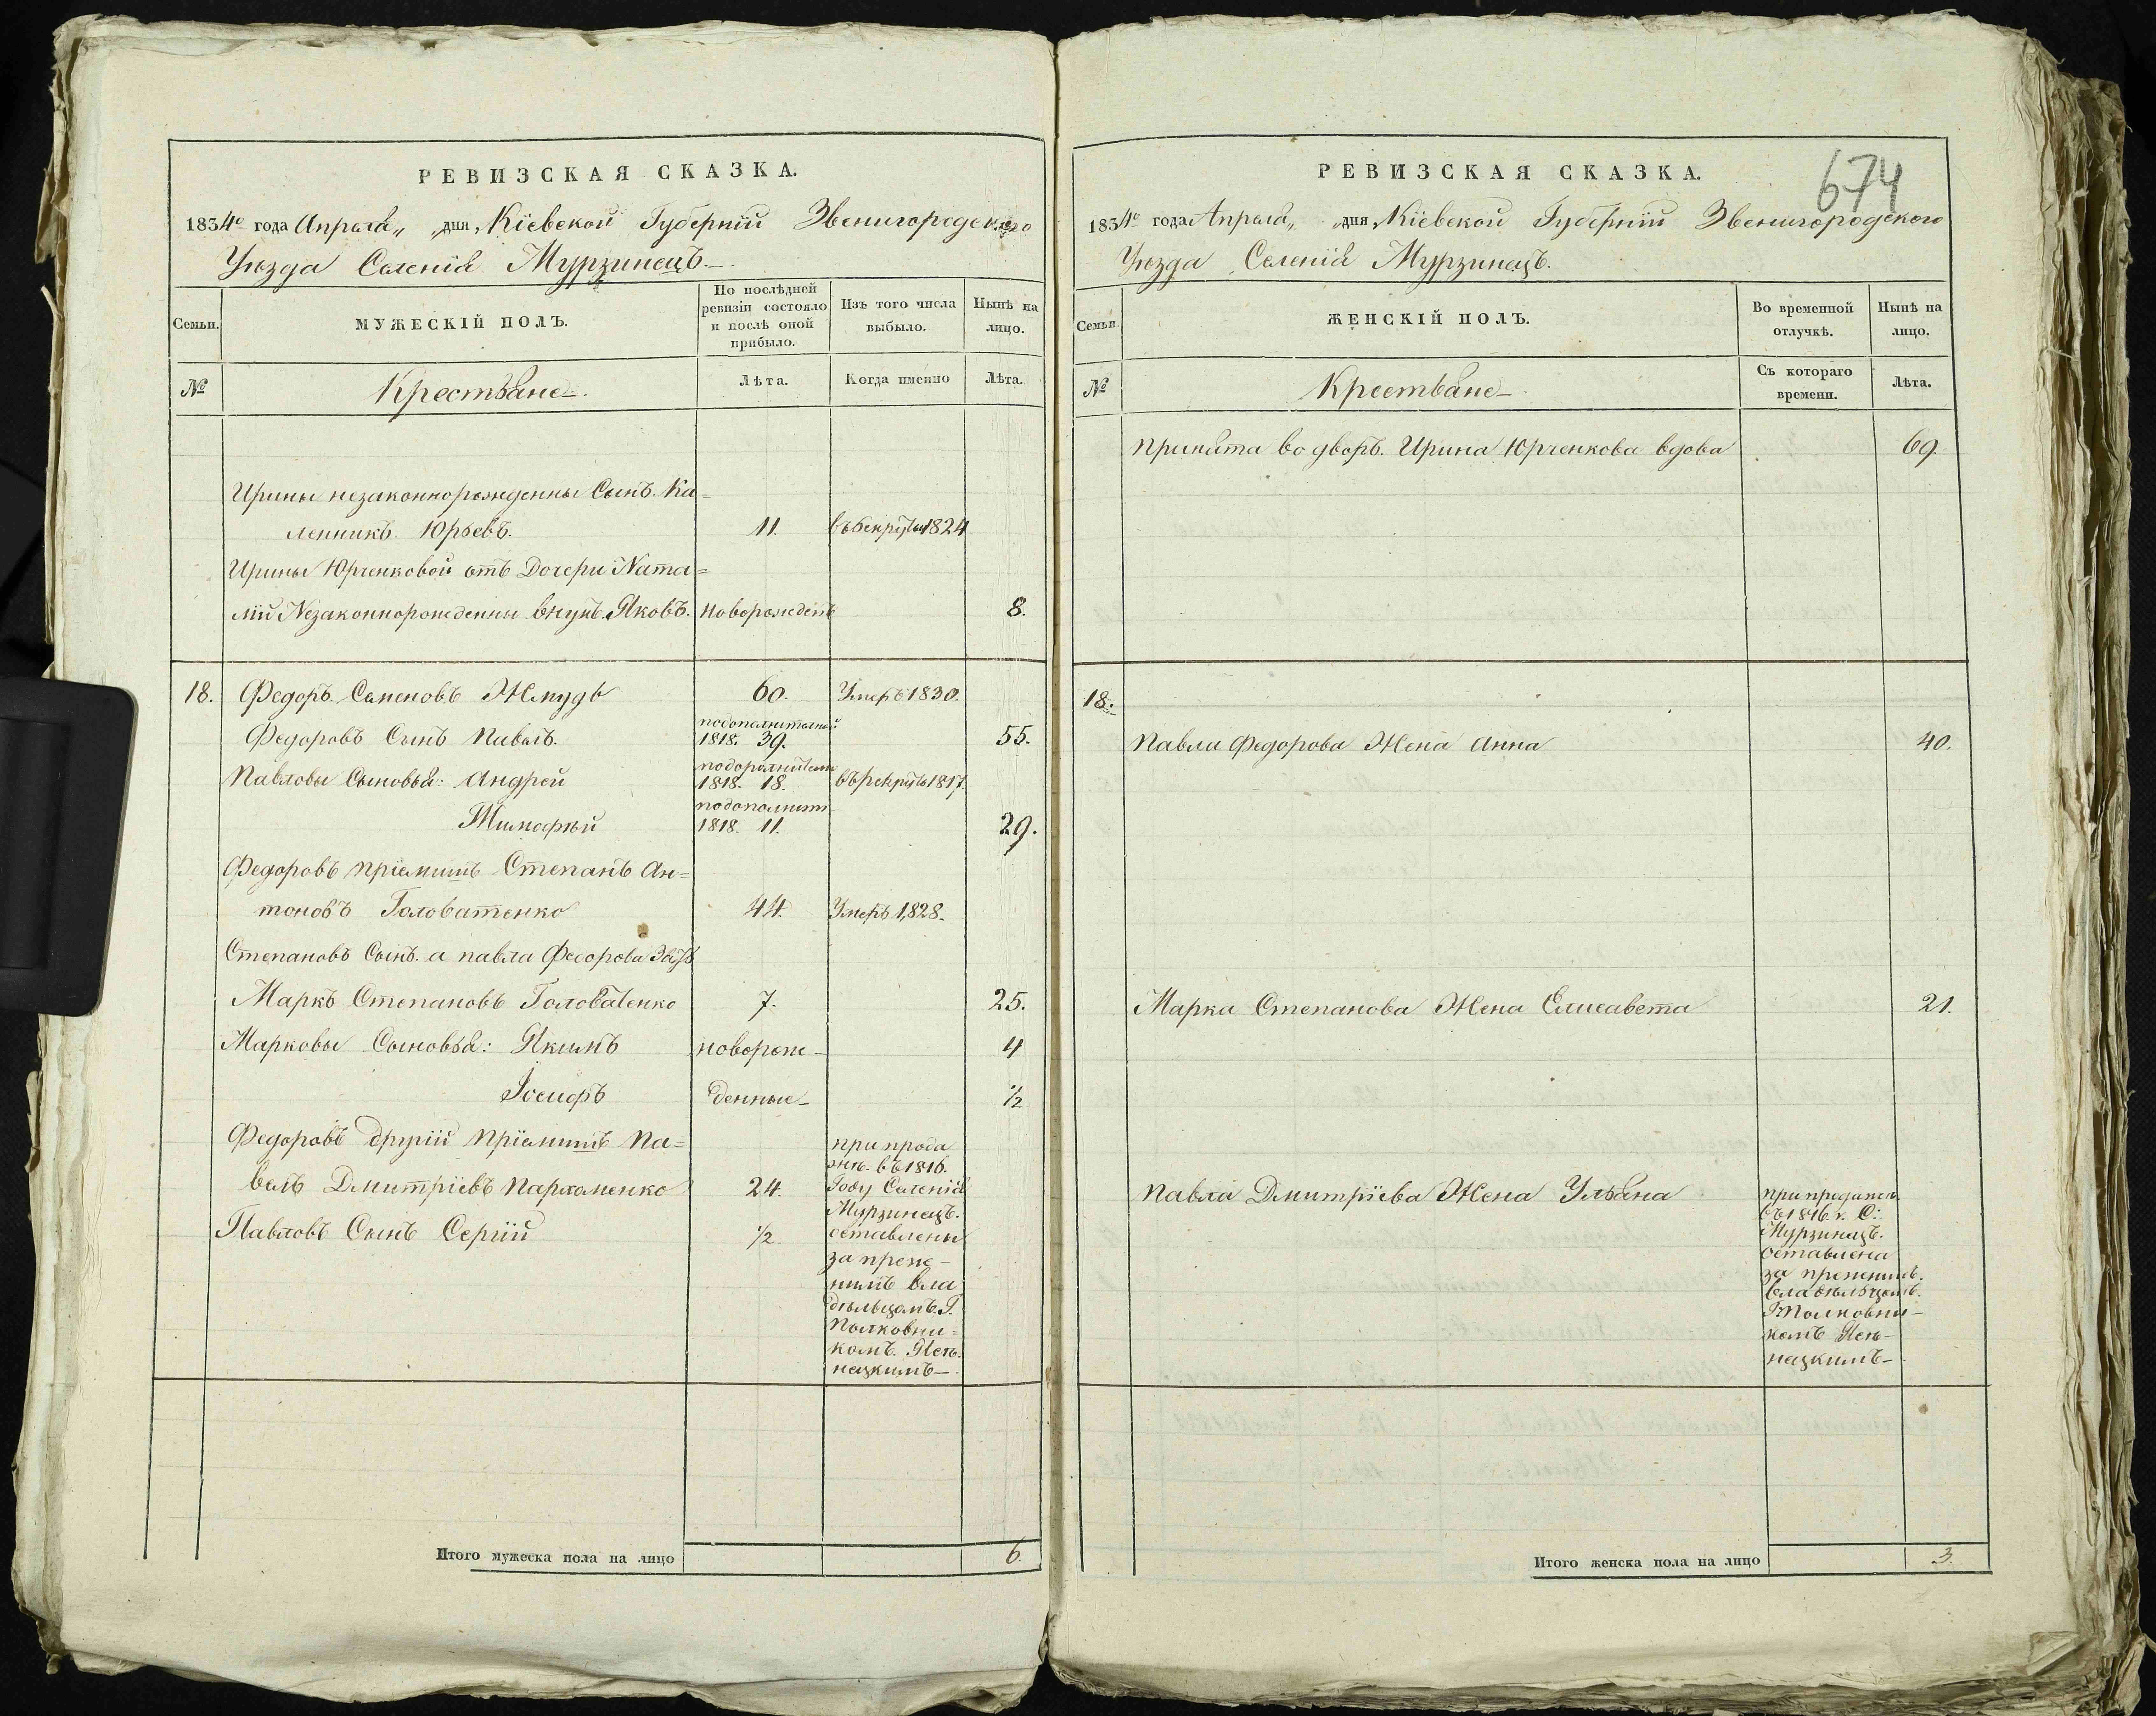 РЕВИЗСКАЯ СКАЗКА.
1834го года Апреля „ „дня, Кіевской Губерніи Звенигородского
Уѣзда Селенія Мурзинецъ.
Семьи.
МУЖЕСКІЙ ПОЛЪ.
По послѣдней
ревизіи состояло
и послѣ оной
прибыло.
Изъ того числа
выбыло.
Нынѣ на
лицо.
№
Крестьяне
Лѣта.
Когда именно
Лѣта.
Ирины незаконнорожденны Сынъ. Ка=
ленникъ. Юрьевъ. 11. 1824
Ирины Юрченковой отъ Дочери Ната=
ліи Незаконнорожденны внукъ. Яковъ. Новорожденъ 8.
18. Федоръ Семеновъ Жмудь 60. Умеръ 1830.
Федоровъ Сынъ Павелъ. 1818. 39. 55.
Павловы Сыновья: Андрей 1818. 18. въ рекруты 1817.
Тимофѣй подополнит 1818. 11. 29.
Федоровъ пріемишъ Степанъ Ан=
тоновъ Головатенко 44. Умеръ 1828.
Степановъ Сынъ. а павла Федорова Зять
Маркъ Степановъ Головатенко 7. 25.
Марковы Сыновья: Якимъ новорож- 4
Іосифъ денные- 1/2
Федоровъ другій пріемишъ Па=
велъ Дмитріевъ Пархоменко 24.
Павловъ Сынъ Сергій 1/2.
при прода
жѣ. въ 1816.
Году Селенія
Мурзинецъ.
оставлены
за преж-
нимъ вла
дѣльцомъ. Г.
Полковни=
комъ.
нецкимъ-
Итого мужеска пола на лицо 6.
674
РЕВИЗСКАЯ СКАЗКА.
1834го года Апреля „ „дня, Кіевской Губерніи Звенигородского
Уѣзда Селенія Мурзинецъ.
Семьи.
ЖЕНСКІЙ ПОЛЪ.
Во временной
отлучкѣ.
Нынѣ на
лицо.
№
Крестьяне
Съ котораго
времени.
Лѣта.
принята во дворъ. Ирина Юрченкова вдова 69.
18.
Павла Федорова Жена Анна 40.
Марка Степанова Жена Елисавета 21.
Павла Дмитріева Жена Ульяна
при продажѣ
въ 1816. г. С:
Мурзинецъ.
оставлена
за прежнимъ.
владѣльцомъ.
Г. Полковни-
комъ
нецкимъ-
Итого женска пола на лицо 3.